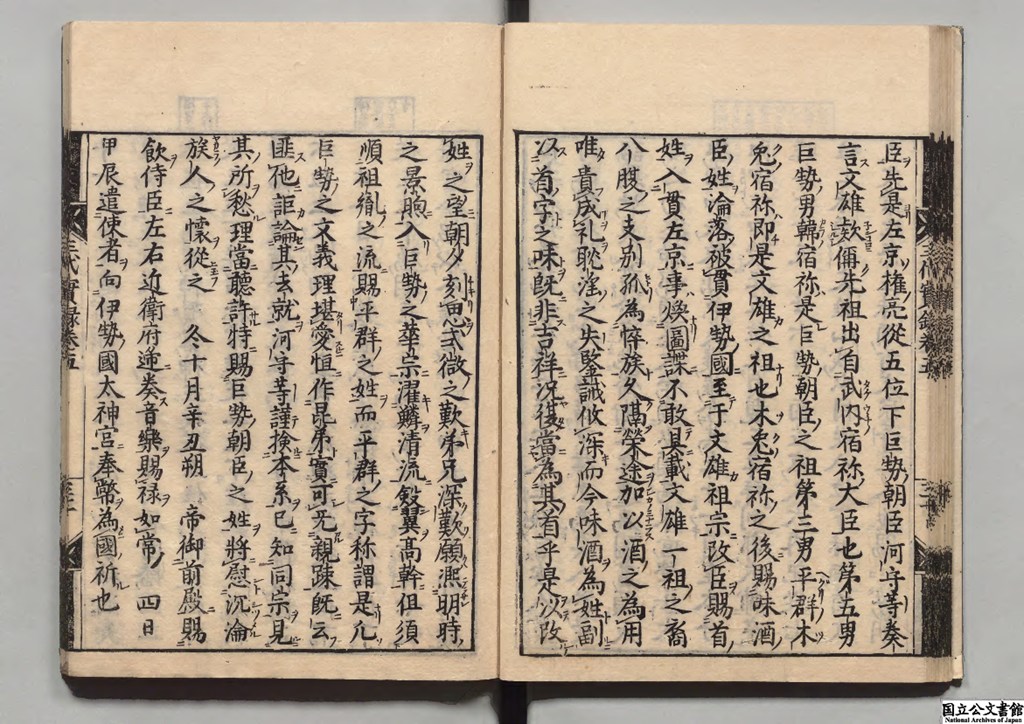 臣先是左京権亮從五位下巨勢朝臣河守等奏
言文雄欵偁先祖出自武内宿祢大臣也第五男
巨勢男韓宿祢是巨勢朝臣之祖第三男平群木
兔宿祢即是文雄之祖也木兔宿祢之後賜味酒
臣姓淪落被貫伊勢國至于文雄祖宗改臣賜首
姓入貫左京事煥圖諜不敢具載文雄一祖之裔
八腹之支別孤為悴族久隔榮途加以酒之為用
唯貴成礼耽淫之失鑒誡攸深而今味酒為姓副
以首字之味既非吉祥况復當為其有乎是以改
姓之望朝夕刻思式微之歎弟兄深歎願凞明時
之景煦入巨勢之華宗濯鱗清流翥翼髙幹但須
順祖胤之流賜平群之姓而平群之字称謂是凢
巨勢之文義理堪愛恒作昆弟寔可无親踈既云
匪他詎論其去就河守等謹撿本系已知同宗見
其所愁理當聴許特賜巨勢朝臣之姓將慰沉淪
族人之懐從之 冬十月辛丑朔 帝御前殿賜
飲侍臣左右近衛府逓奏音樂賜禄如常 四日
甲辰遣使者向伊勢國太神宮奉幣為國祈也
三代實録巻五
国立公文書館
National Archives of Japan